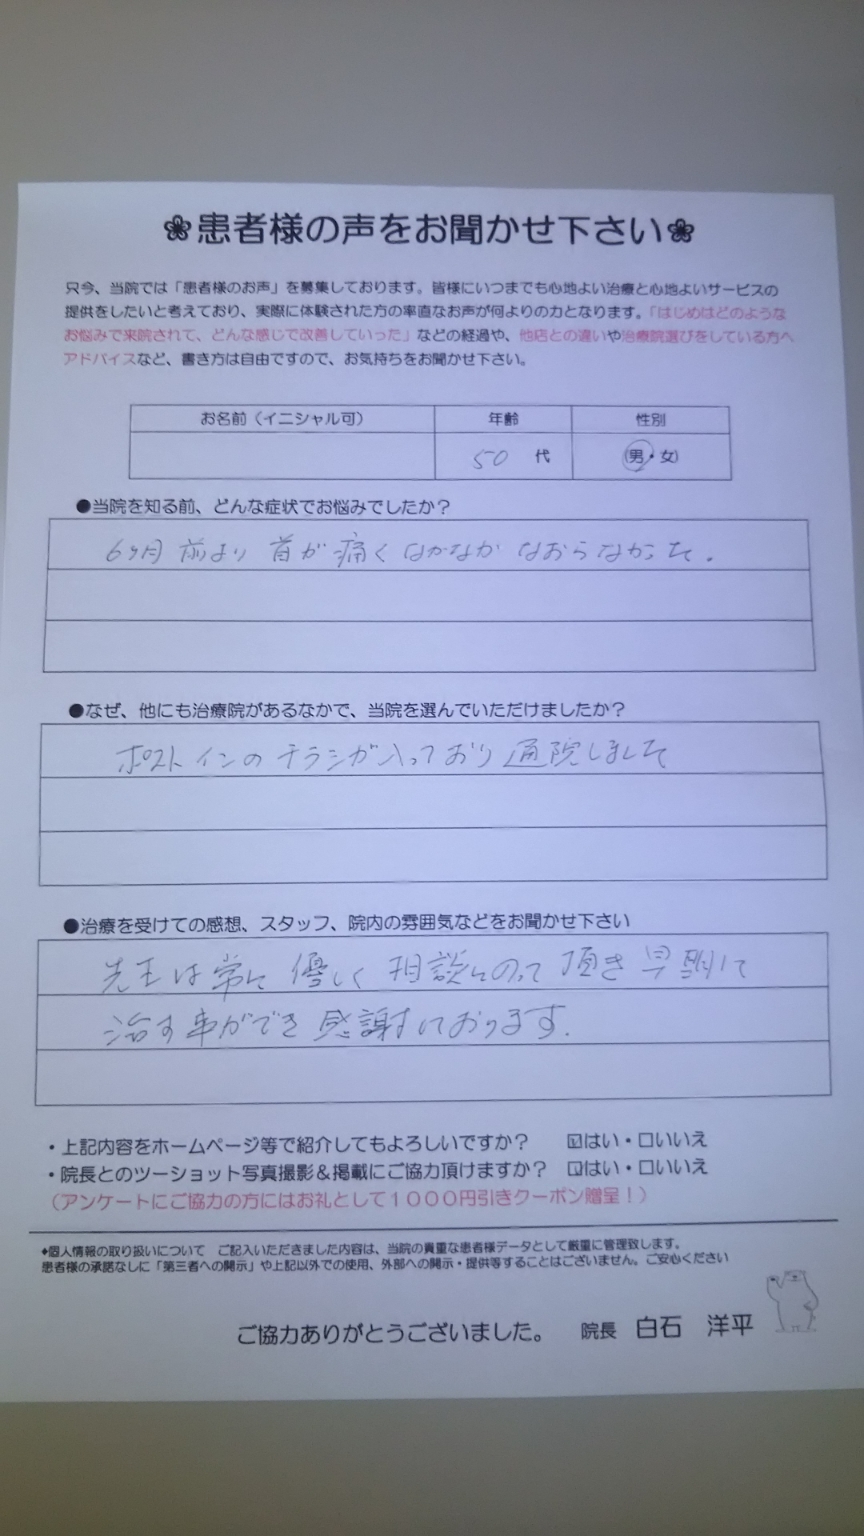 ❀患者様の声をお聞かせ下さい❀
只今、当院では「患者様のお声」を募集しております。皆様にいつまでも心地よい治療と心地よいサービスの
提供をしたいと考えており、実際に体験された方の率直なお声が何よりの力となります。「はじめはどのような
お悩みで来院されて、どんな感じで改善していった」などの経過や、他店との違いや治療院選びをしている方へ
アドバイスなど、書き方は自由ですので、お気持ちをお聞かせ下さい。
お名前（イニシャル可） 年齢 性別
50 代 (男・女)
●当院を知る前、どんな症状でお悩みでしたか？
6ヶ月前より首が痛くなかなかなおらなかった.
●なぜ、他にも治療院があるなかで、当院を選んでいただけましたか？
ポストインのチラシが入っており通院しました
●治療を受けての感想、スタッフ、院内の雰囲気などをお聞かせ下さい
先生は常に優しく相談にのって頂き早期に
治す事ができ感謝しております.
・上記内容をホームページ等で紹介してもよろしいですか？ ☑はい・□いいえ
・院長とのツーショット写真撮影＆掲載にご協力頂けますか？ ☑はい・□いいえ
（アンケートにご協力の方にはお礼として１０００円引きクーポン贈呈！）
♦個人情報の取り扱いについて ご記入いただきました内容は、当院の貴重な患者様データとして厳重に管理致します。
患者様の承諾なしに「第三者への開示」や上記以外での使用、外部への開示・提供等することはございません。ご安心ください
ご協力ありがとうございました。 院長 白石 洋平